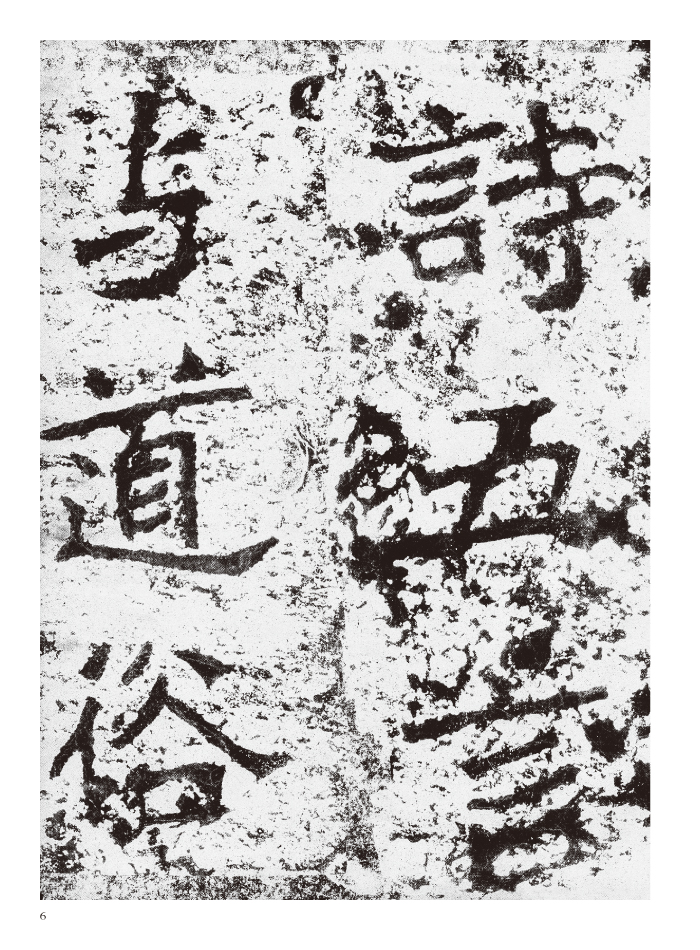 詩五言
与道俗
6